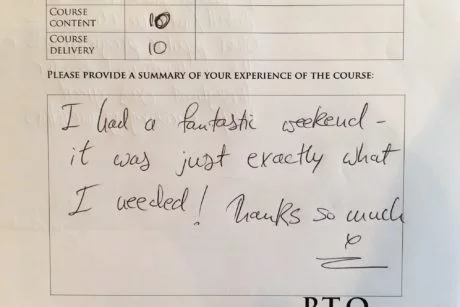 COURSE
CONTENT 10
COURSE
DELIVERY 10
PLEASE PROVIDE A SUMMARY OF YOUR EXPERIENCE OF THE COURSE:
I had a fantastic weekend -
it was just exactly what
I needed! Thanks so much
x